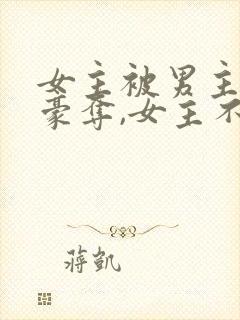 女主被男主
豪夺,女主不
蒋凯